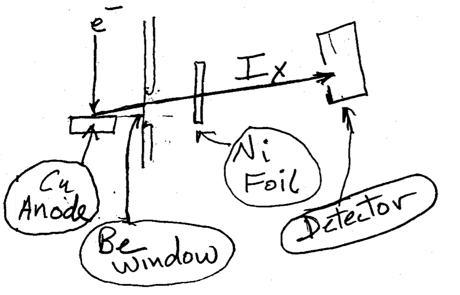 e⁻
Ix
Cu
Anode
Be
window
Ni
Foil
Detector